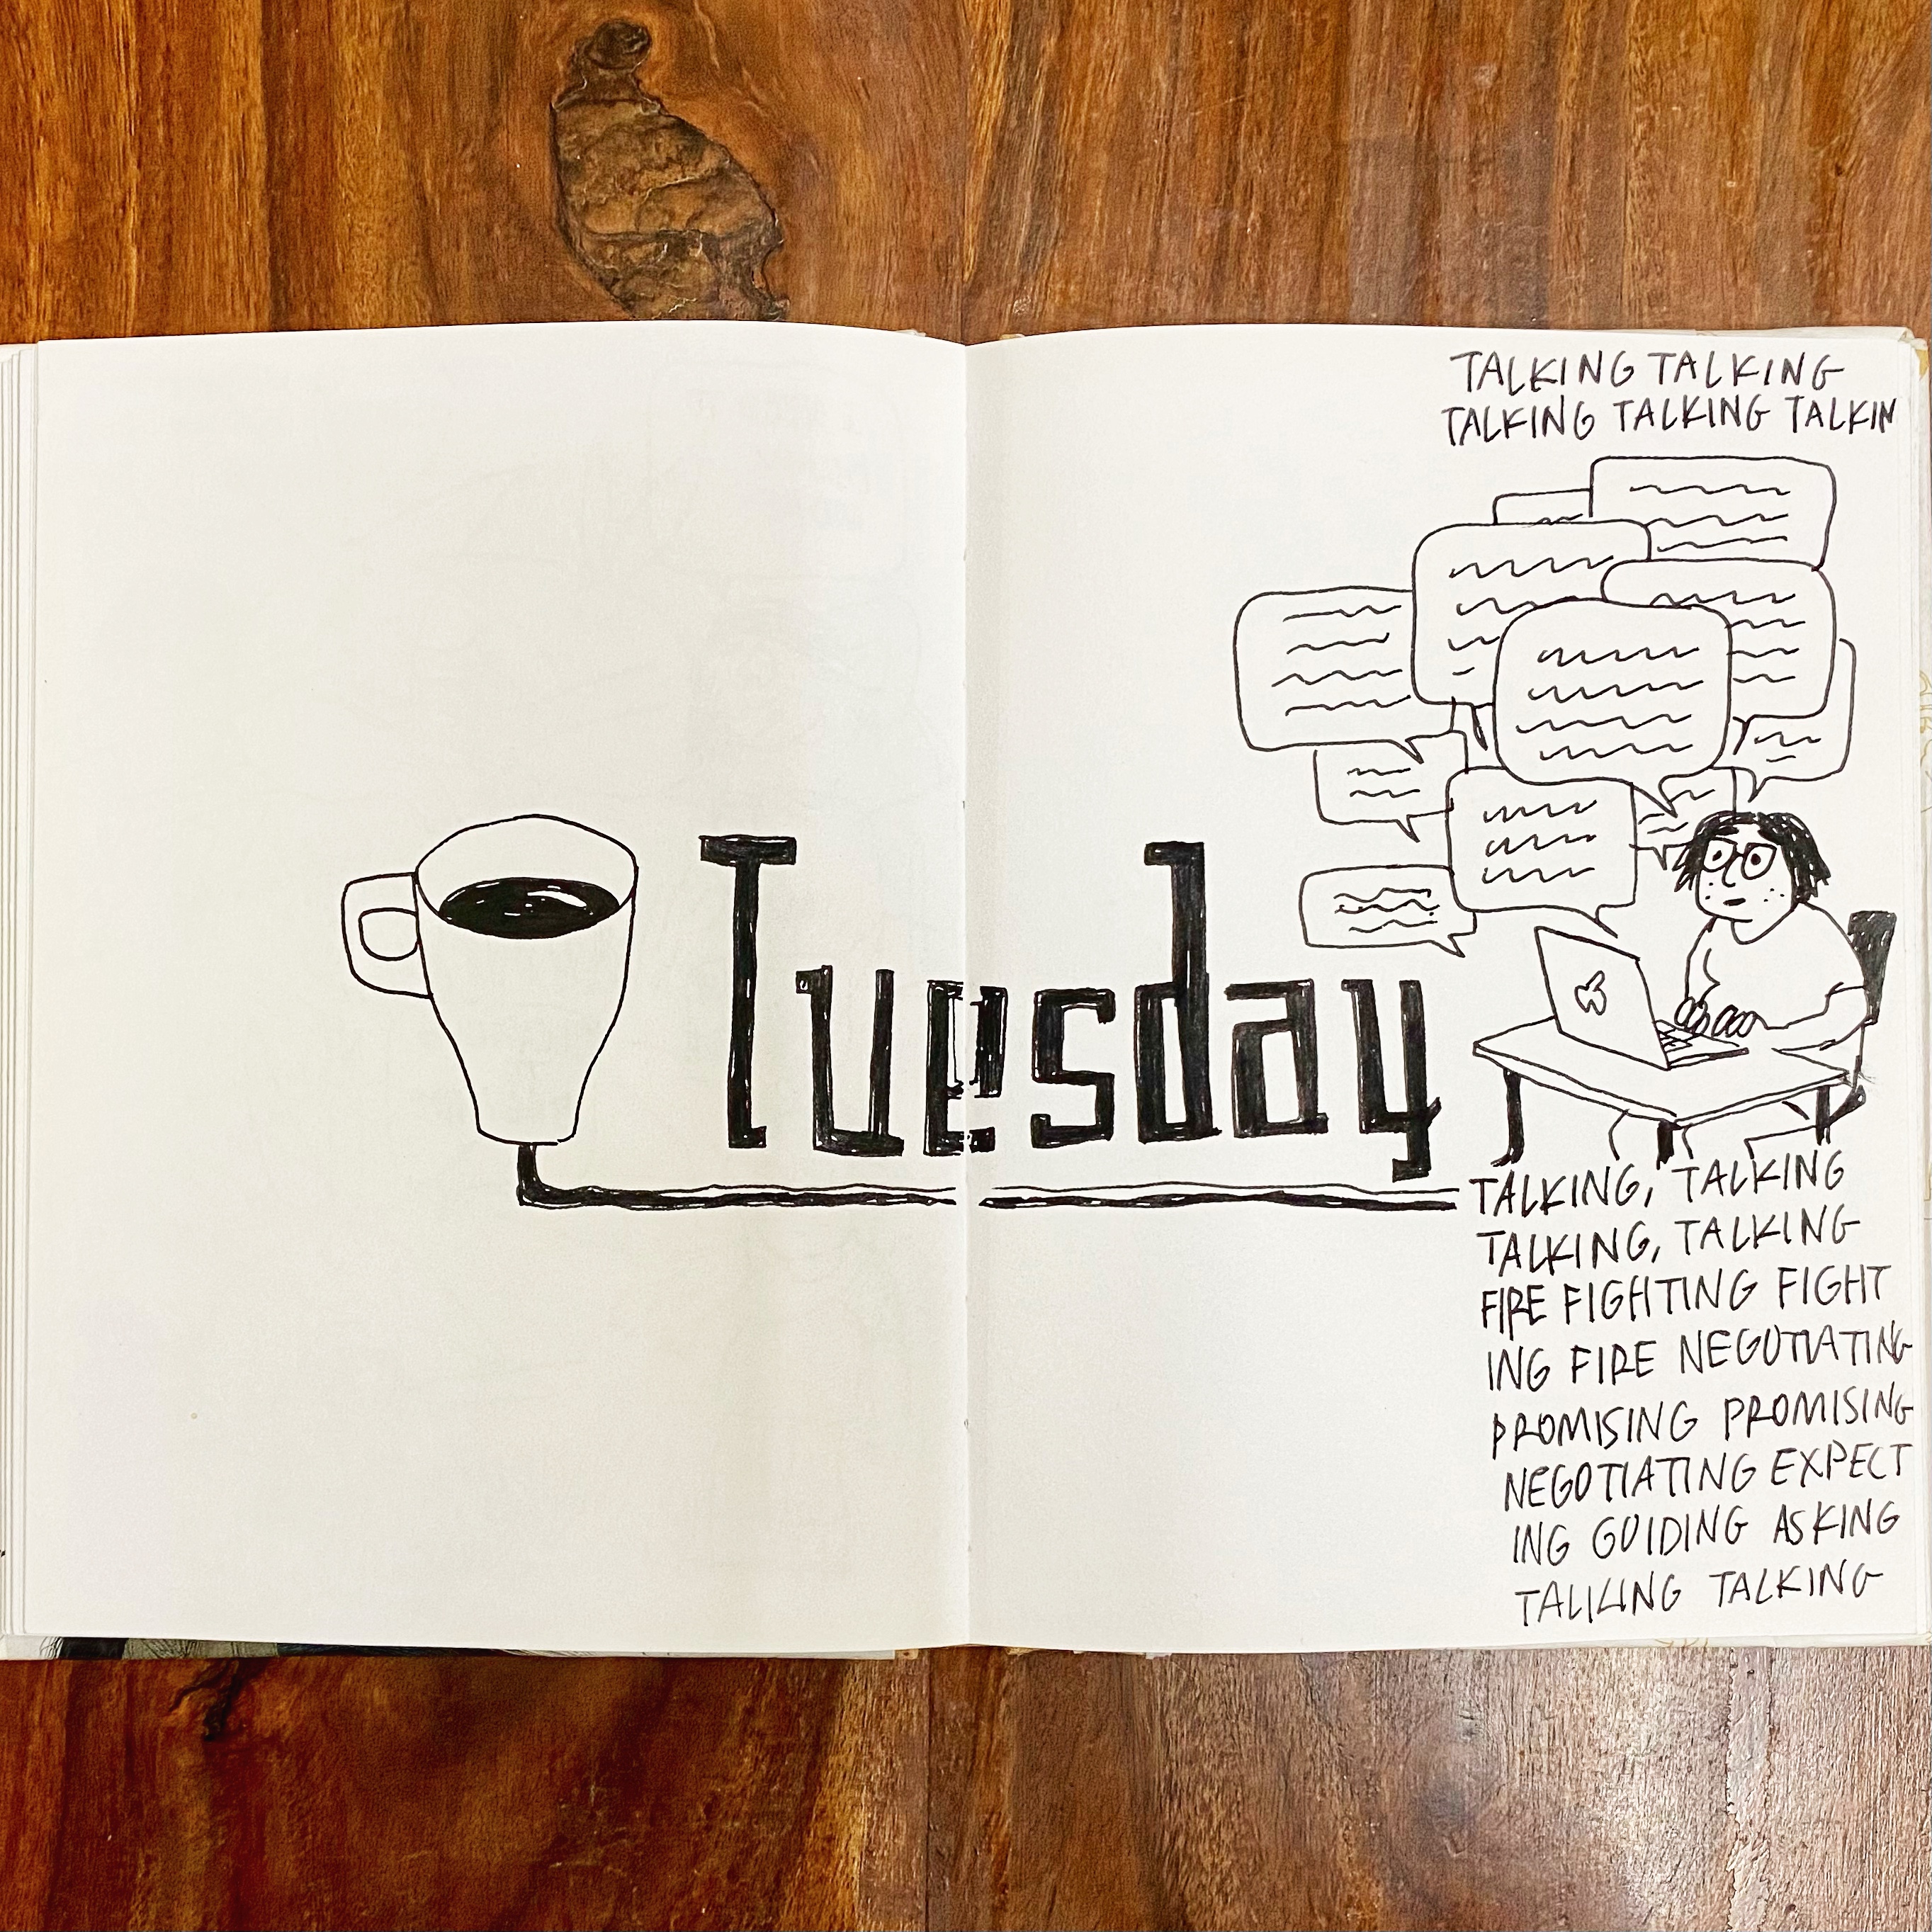 Tuesday
TALKING TALKING
TALKING TALKING TALKIN
TALKING, TALKING
TALKING, TALKING
FIRE FIGHTING FIGHT
ING FIRE NEGOTIATING
PROMISING PROMISING
NEGOTIATING EXPECT
ING GUIDING ASKING
TALKING TALKING